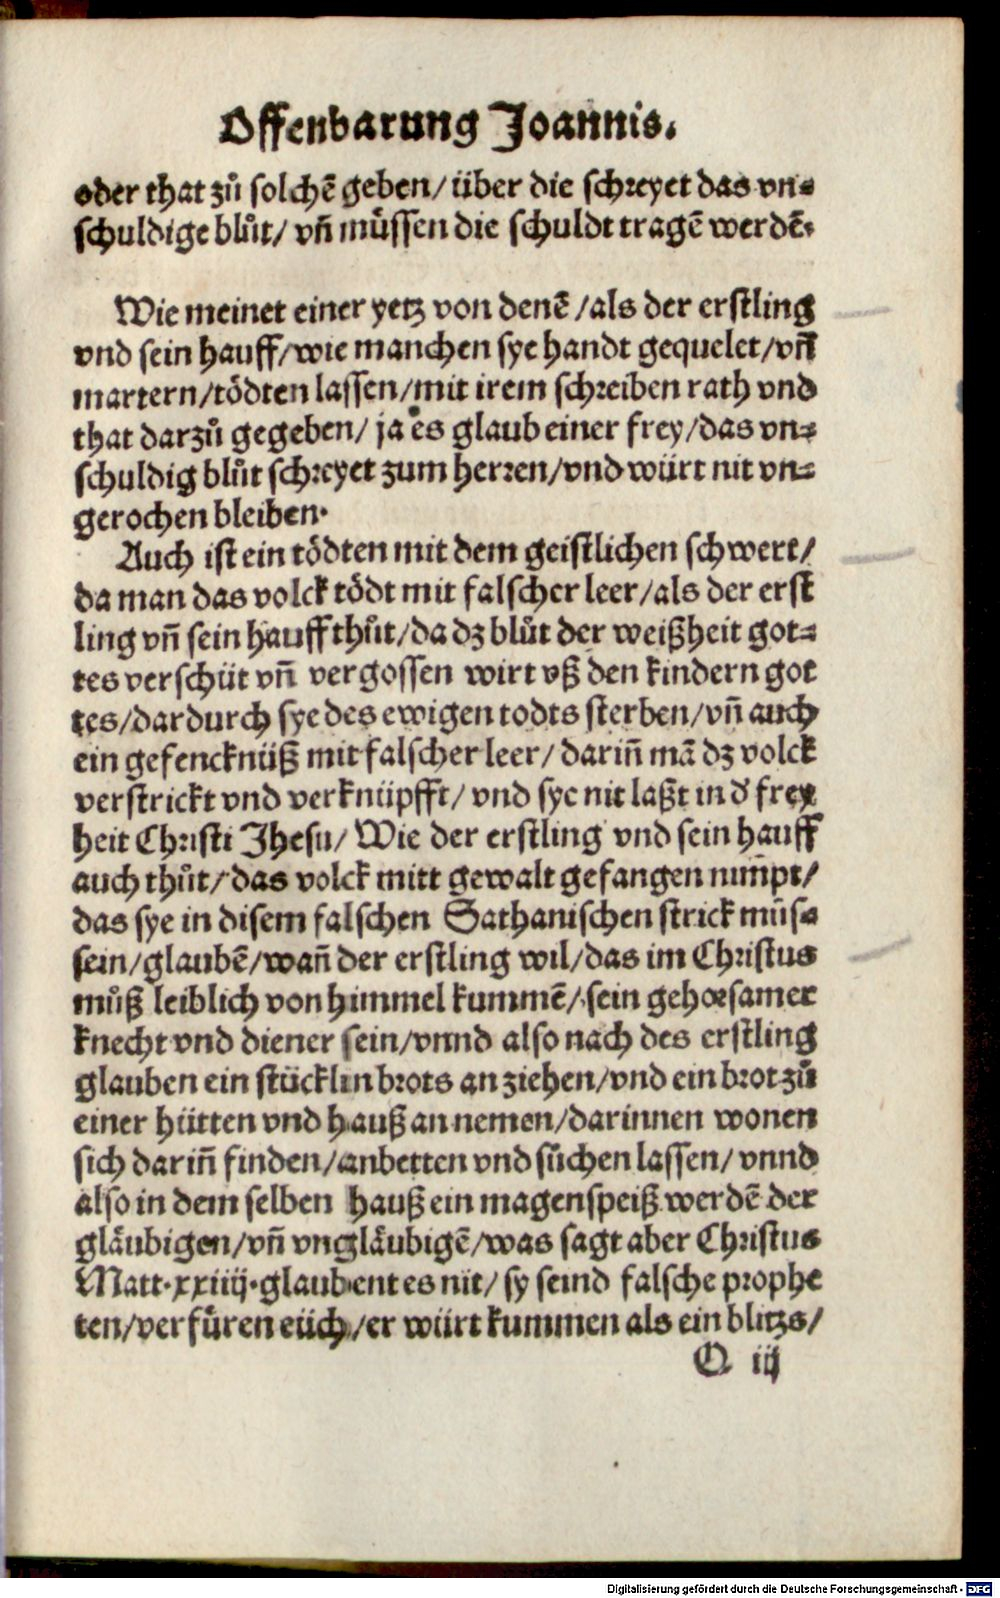 Offenbarung Joannis.
oder that zů solchē geben/ über die schreyet das vn⸗
schuldige blůt/ vñ můssen die schuldt tragē werdē.
Wie meinet einer yetz von denē /als der erstling
vnd sein hauff/wie manchen sye handt gequelet/vñ
martern/tödten lassen/mit irem schreiben rath vnd
that darzů gegeben/ ja es glaub einer frey/das vn⸗
schuldig blůt schreyet zum herren/vnd würt nit vn⸗
gerochen bleiben.
Auch ist ein tödten mit dem geistlichen schwert/
da man das volck tödt mit falscher leer/als der erst
ling vñ sein hauff thůt/da dz blůt der weißheit got⸗
tes verschüt vñ vergossen wirt vß den kindern got
tes/dardurch sye des ewigen todts sterben/vñ auch
ein gefencknüß mit falscher leer/ dariñ mā dz volck
verstrickt vnd verknüpfft/ vnd sye nit laßt in d' frey
heit Christi Jhesu/ Wie der erstling vnd sein hauff
auch thůt/ das volck mitt gewalt gefangen nim̄pt/
das sye in disem falschen Sathanischen strick můs⸗
sein/glaubē/wañ der erstling wil/das im Christus
můß leiblich von himmel kummē/ sein gehorsamer
knecht vnd diener sein/vnnd also nach des erstling
glauben ein stücklin brots an ziehen/vnd ein brot zů
einer hütten vnd hauß an nemen/darinnen wonen
sich dariñ finden/anbetten vnd sůchen lassen/ vnnd
also in dem selben hauß ein magenspeiß werdē der
gläubigen/vñ vngläubigē/was sagt aber Christus
Matt.xxiiij.glaubent es nit/ sy seind falsche prophe
ten/verfůren eüch/er würt kummen als ein blitzs/
O iij
Digitalisierung gefördert durch die Deutsche Forschungsgemeinschaft - DFG